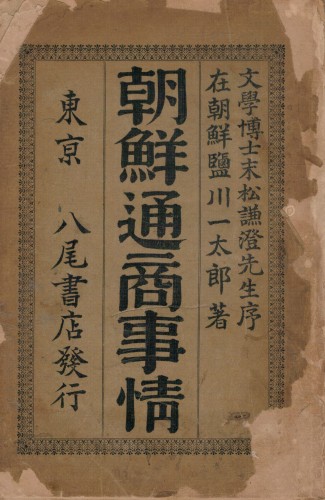 文學博士末松謙澄先生序
在朝鮮鹽川一太郎著
朝鮮通商事情
東京 八尾書店發行